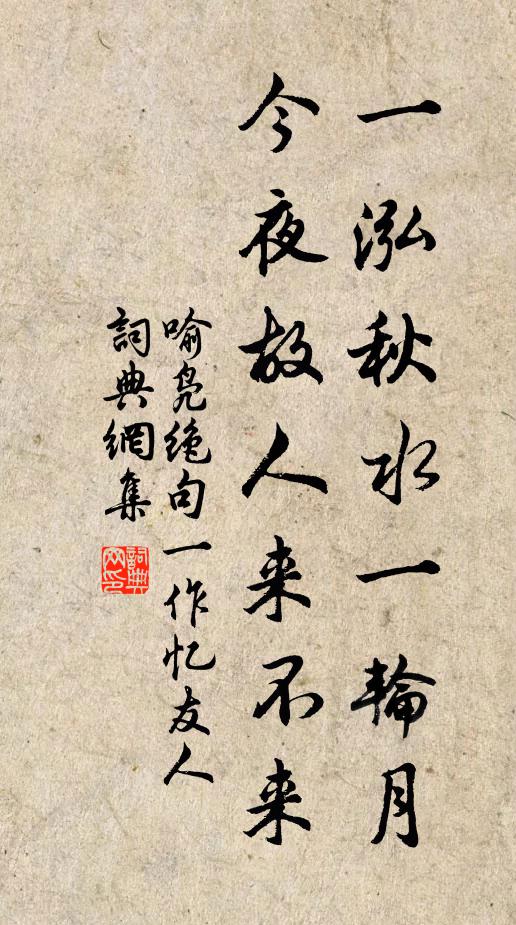 一泓秋水一輪月
今夜故人来不来
喻凫绝句一作忆友人
詞典網集
詞典網印